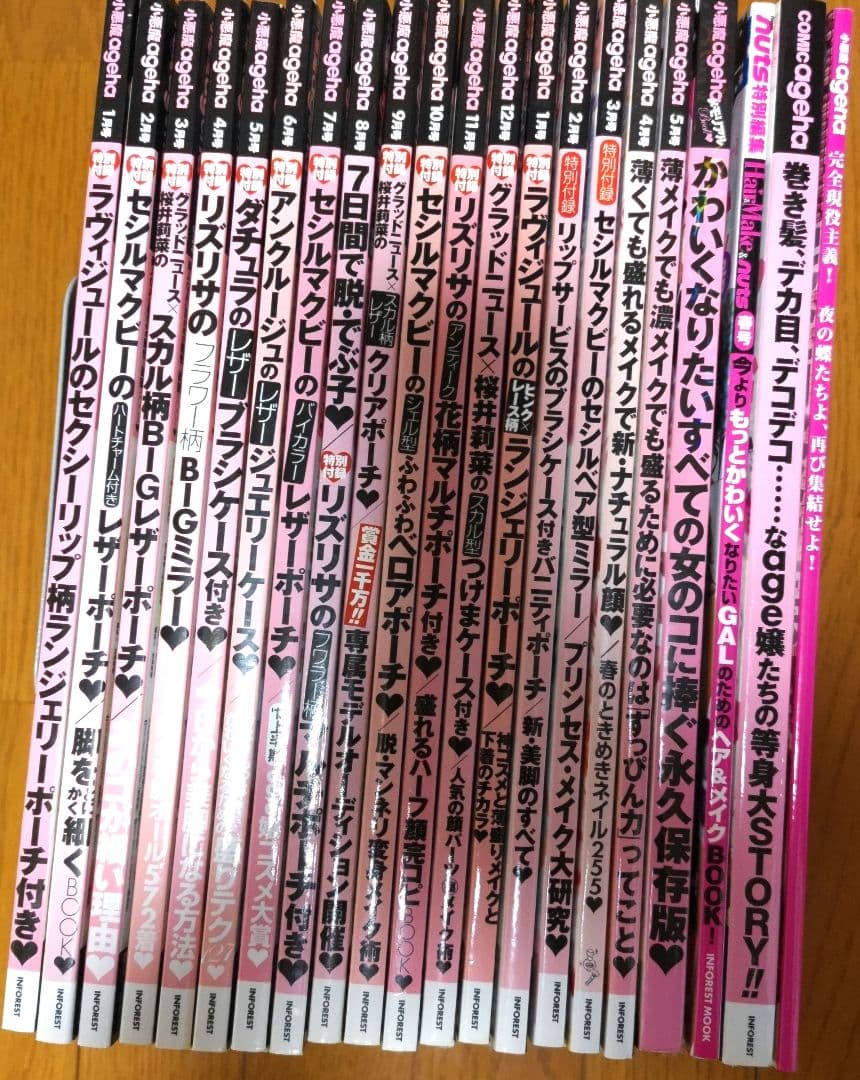 小悪魔ageha 1月号 特別付録 ラヴィジュールのセクシーリップ柄ランジェリーポーチ付き♥ INFOREST
小悪魔ageha 2月号 特別付録 セシルマクビーのハートチャーム付きレザーポーチ♥/脚をとにかく細くBOOK♥ INFOREST
小悪魔ageha 3月号 特別付録 グラッドニュース×桜井莉菜のスカル柄BIGレザーポーチ♥/ 理由♥ INFOREST
小悪魔ageha 4月号 特別付録 リズリサのフラワー柄BIGミラー♥ オール572着♥ INFOREST
小悪魔ageha 5月号 特別付録 ダチュラのレザーブラシケース付き♥/ になる方法♥ INFOREST
小悪魔ageha 6月号 特別付録 アンクルージュのレザージュエリーケース♥ 盛りテク127 INFOREST
小悪魔ageha 7月号 特別付録 セシルマクビーのバイカラーレザーポーチ♥/ コスメ大賞♥ INFOREST
小悪魔ageha 8月号 7日間で脱・でぶ子♥/特別付録 リズリサのフラワー柄マルチポーチ付き♥ INFOREST
小悪魔ageha 9月号 特別付録 グラッドニュース×桜井莉菜のスカル柄レザークリアポーチ♥/賞金一千万!!専属モデルオーディション開催♥ INFOREST
小悪魔ageha 10月号 特別付録 セシルマクビーのシェル型ふわふわベロアポーチ♥/脱・マンネリ変身メイク術♥ INFOREST
小悪魔ageha 11月号 特別付録 リズリサのアンティーク花柄マルチポーチ付き♥/盛れるハーフ顔完コピBOOK♥ INFOREST
小悪魔ageha 12月号 特別付録 グラッドニュース×桜井莉菜のスカル型つけまケース付き♥/人気の顔パーツ別メイク術♥ INFOREST
小悪魔ageha 1月号 特別付録 ラヴィジュールのピンク×レース柄ランジェリーポーチ♥/神コスメと薄盛りメイクと下着のチカラ♥ INFOREST
小悪魔ageha 2月号 特別付録 リップサービスのブラシケース付きバニティポーチ/新・美脚のすべて♥ INFOREST
小悪魔ageha 3月号 特別付録 セシルマクビーのセシルベア型ミラー/プリンセス・メイク大研究♥ INFOREST
小悪魔ageha 4月号 薄くても盛れるメイクで新・ナチュラル顔♥/春のときめきネイル255♥ INFOREST
小悪魔ageha 5月号 薄メイクでも濃メイクでも盛るために必要なのは「すっぴん力」ってこと♥
小悪魔ageha メモリアルBook♥ かわいくなりたいすべての女のコに捧ぐ永久保存版♥
nuts特別編集 Hair&Make nuts 春号 今よりもっとかわいくなりたいGALのためのヘア&メイクBOOK! INFOREST MOOK
COMIC ageha 巻き髪、デカ目、デコデコ……なage嬢たちの等身大STORY!! INFOREST
小悪魔ageha 完全現役主義! 夜の蝶たちよ、再び集結せよ!